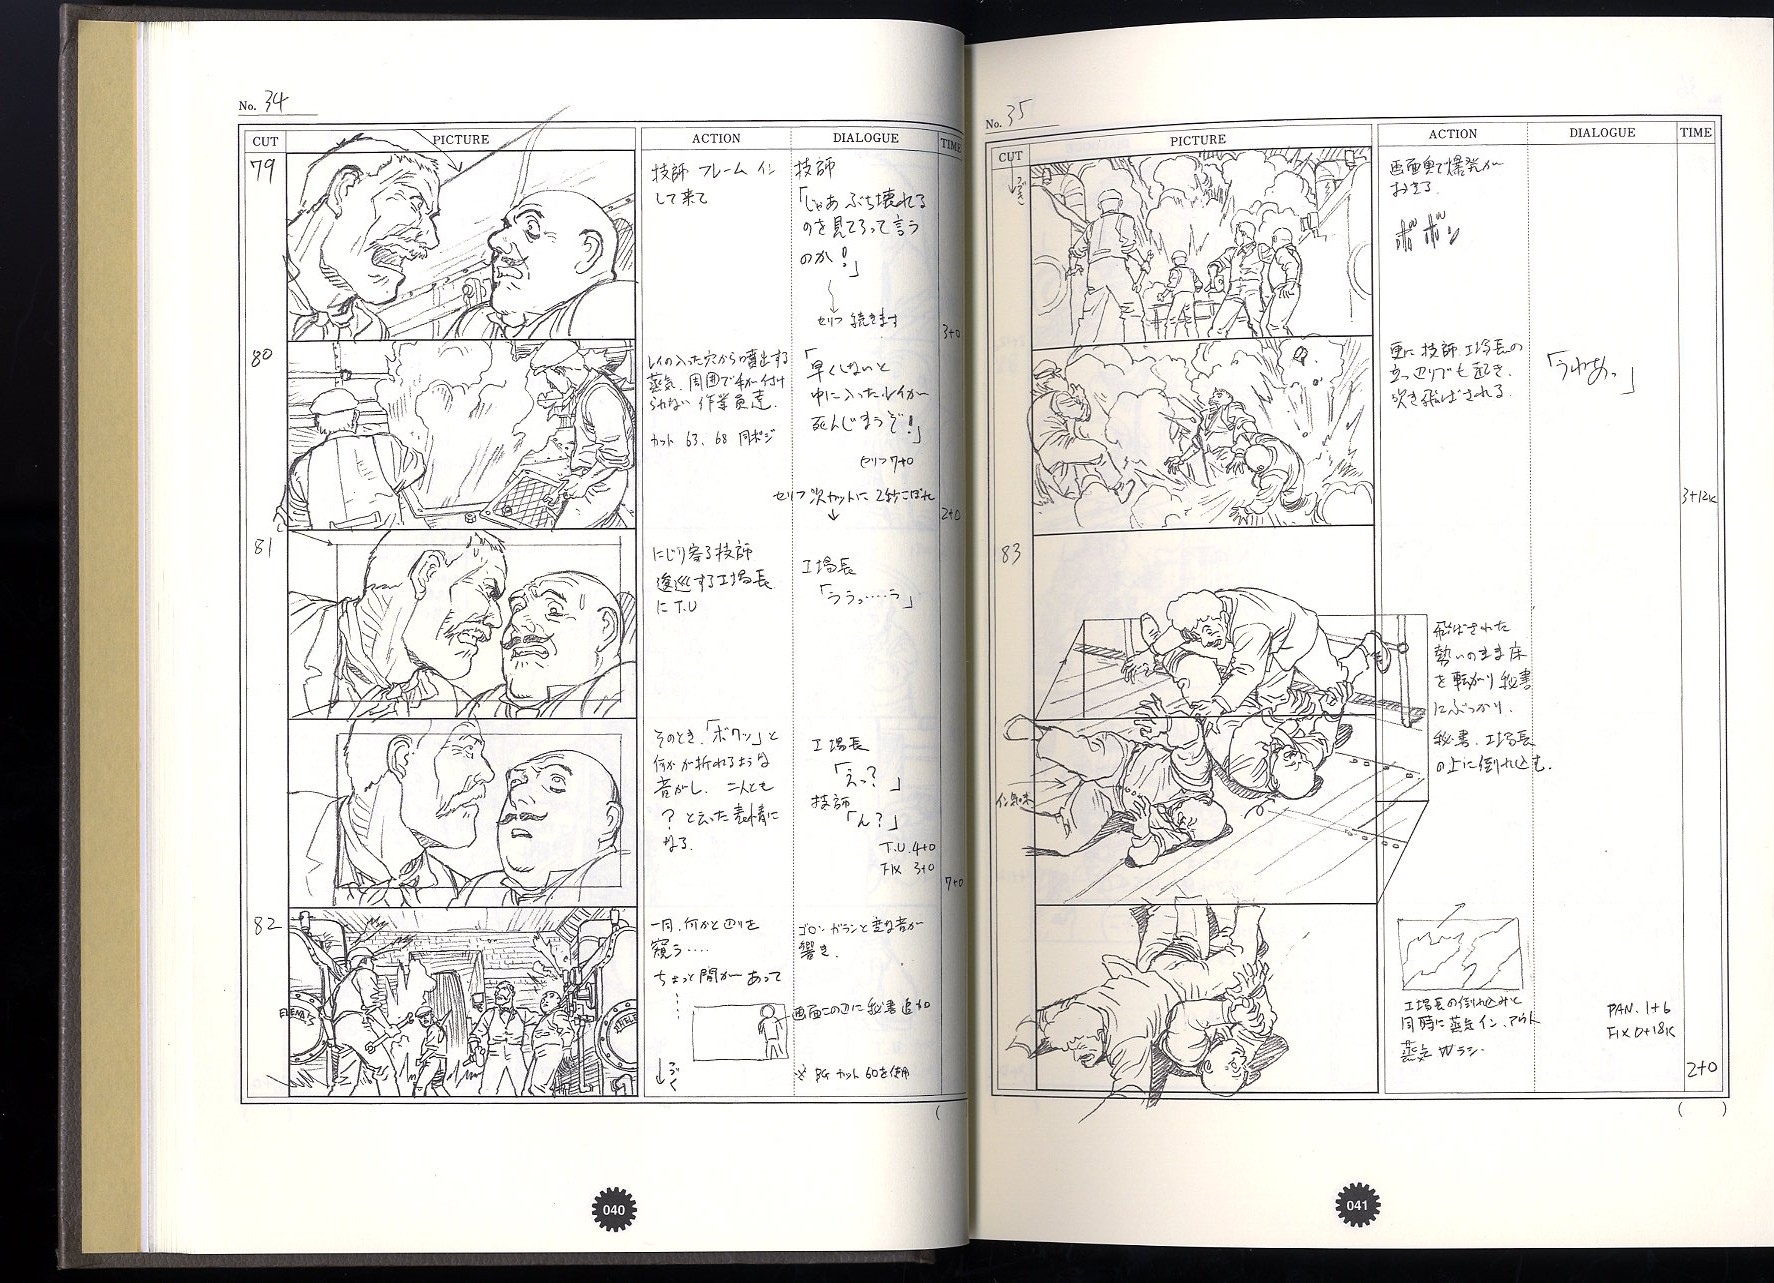 No. 34
CUT
PICTURE
ACTION
DIALOGUE
TIME
79
技師 フレーム イン
して来て
技師
「じゃあ ぶち壊れる
のを見てろって言う
のか!」
セリフ 続きます
3+0
80
レイの入った穴からの噴出する
蒸気、周囲で手が付け
られない 作業員達.
カット 63、68 同ポジ
「早くしないと
中に入ったレイが
死んじまうぞ!」
セリフ7+0
セリフ次カットに 2秒こぼれ
2+0
81
にじり寄る技師
逡巡する工場長
に T.U
工場長
「ううっ‥‥う」
そのとき、「ボクッ」と
何かが折れるような
音がし、二人とも
? と云った表情に
なる.
工場長
「えっ? 」
技師
「ん?」
T.U. 4+0
FIX 3+0
7+0
82
ELENA'S
一同、何かと辺りを
窺う‥‥
ちょっと間が あって
画面この辺に 秘書 追加
つづく
ゴロン ガランと変な音が
響き.
※ BG カット 60を使用
040
No. 35
CUT
PICTURE
ACTION
DIALOGUE
TIME
つづき
画面奥で爆発が
おきる.
ボボン
更に 技師、工場長の
立つ辺りでも起き、
吹き飛ばされる.
「うわあっ」
3+12K
83
飛ばされた
勢いのまま床
を転がり 秘書
にぶつかり.
秘書、工場長
の上に倒れ込む.
イン気味
工場長の倒れ込みと
同時に蒸気イン、アウト
蒸気 Wラシ.
PAN. 1+6
FIX 0+18K
2+0
( )
041